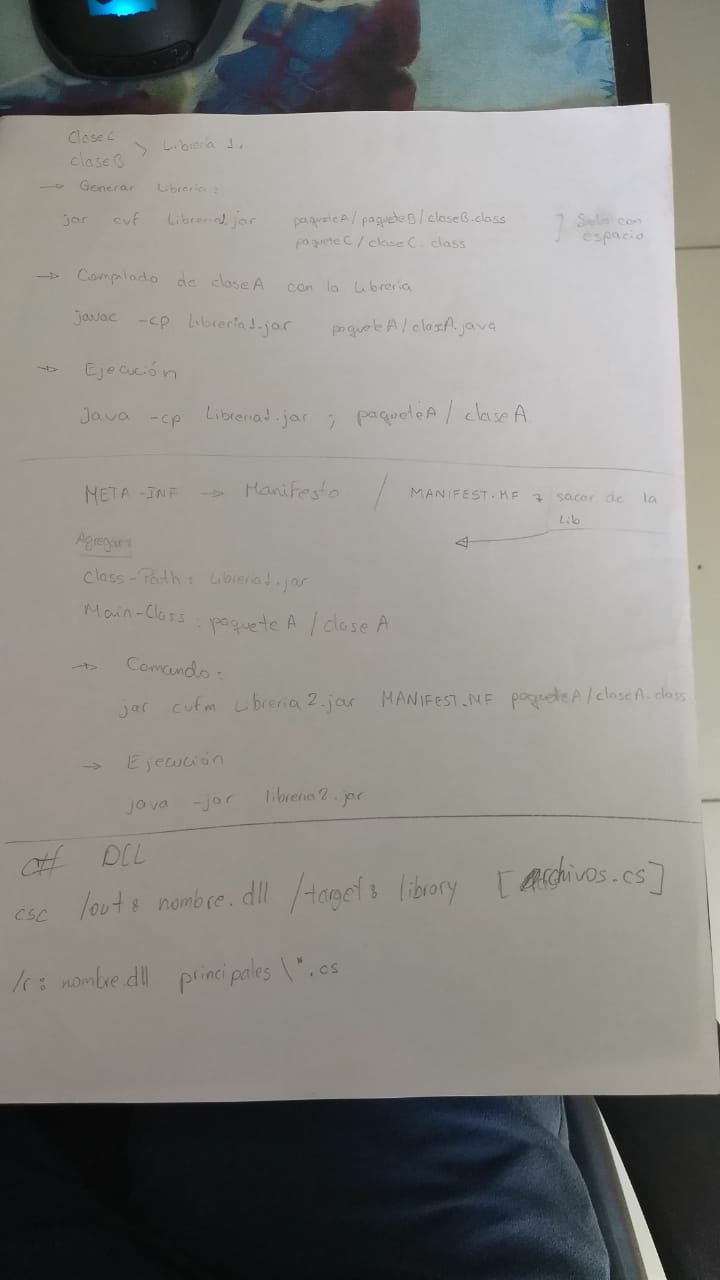 Clase C
clase B > Librería 1.
→ Generar Librería:
jar cvf Libreria1.jar paqueteA/paqueteB/claseB.class ] Solo con
paqueteC/claseC.class espacio
→ Compilado de claseA con la librería
javac -cp Libreria1.jar paqueteA/claseA.java
→ Ejecución
Java -cp Libreria1.jar ; paqueteA/claseA
META-INF → Manifiesto / MANIFEST.MF → sacar de la
Lib
Agregar:
Class-Path: Libreria1.jar
Main-Class: paqueteA/claseA
→ Comando:
jar cvfm Libreria2.jar MANIFEST.MF paqueteA/claseA.class
→ Ejecución
java -jar libreria2.jar
C# DLL
csc /out: nombre.dll /target: library [archivos.cs]
/r: nombre.dll principales\*.cs